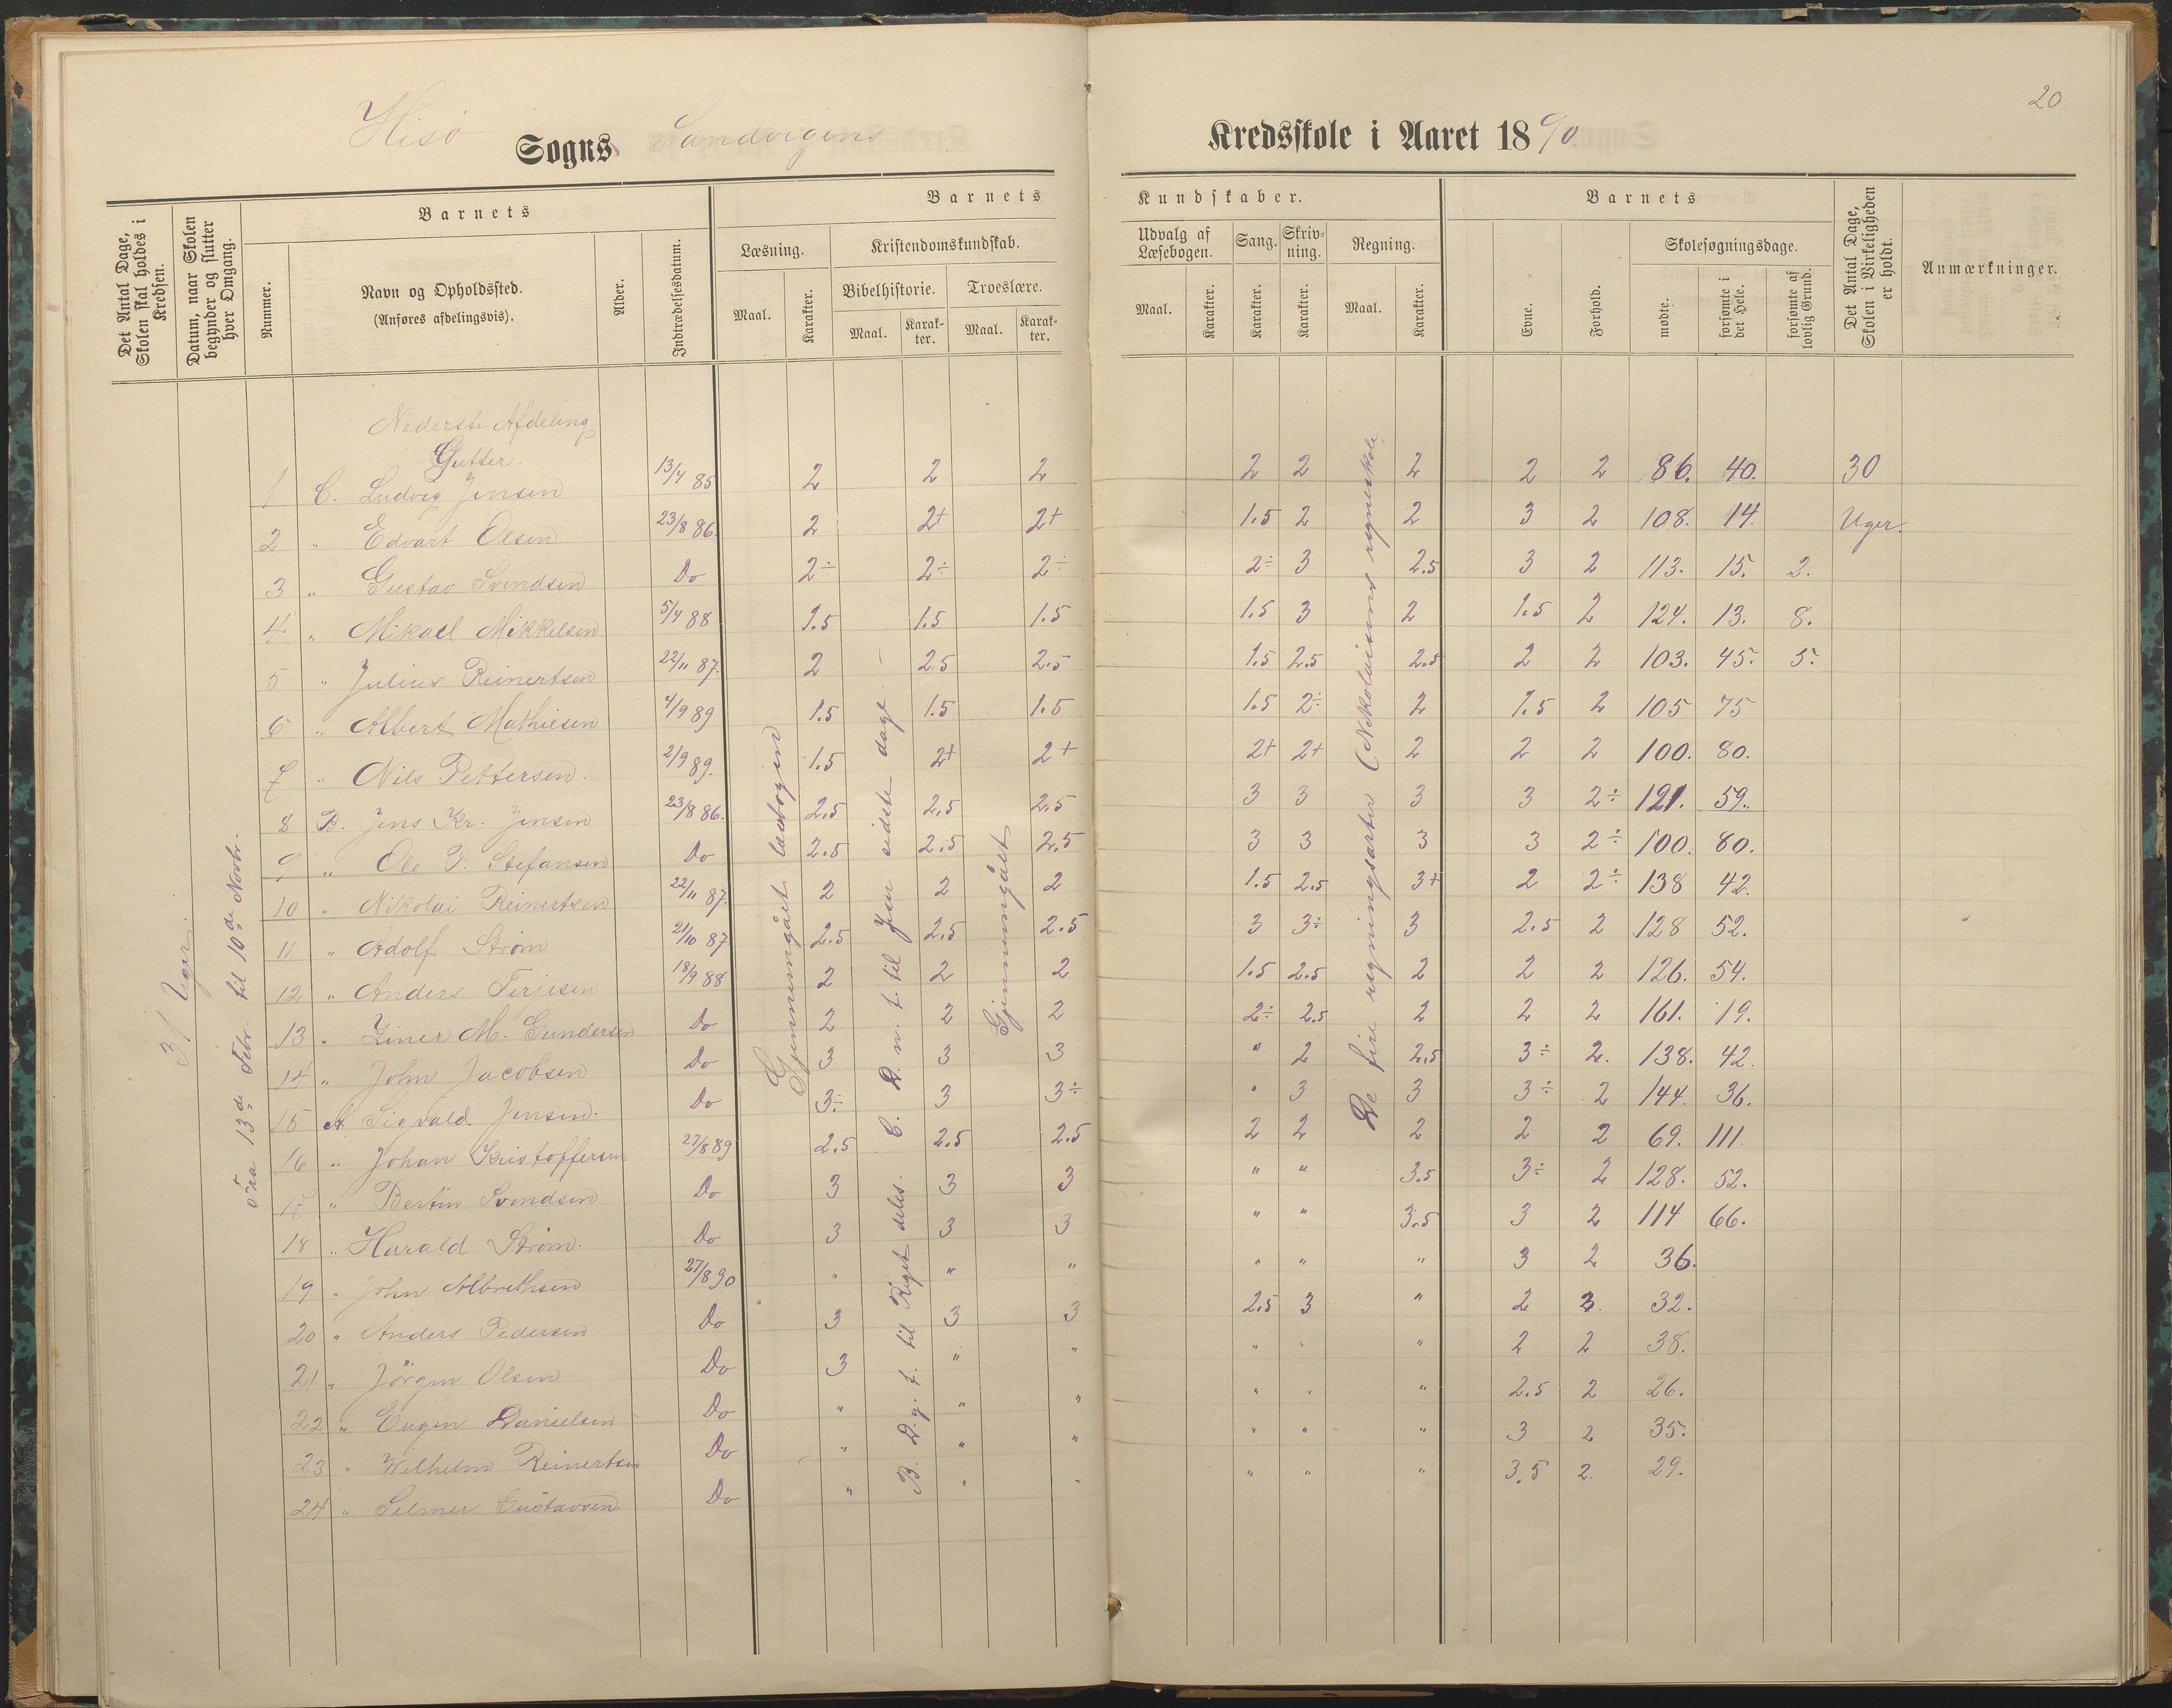 20
Hisö Sogns Sandvigens Kredsskole i Aaret 1890.
Det Antal Dage, Skolen skal holdes i Kredsen.
Datum, naar Skolen begynder og slutter hver Omgang.
Barnets
Nummer.
Navn og Opholdssted.
(Anføres afdelingsvis).
Alder.
Indtrædelsesdatum.
Barnets Kundskaber.
Læsning.
Maal.
Karakter.
Kristendomskundskab.
Bibelhistorie.
Maal.
Karakter.
Troeslære.
Maal.
Karakter.
Udvalg af Læsebogen.
Maal.
Karakter.
Sang.
Karakter.
Skrivning.
Karakter.
Regning.
Maal.
Karakter.
Barnets
Evne.
Forhold.
Skolesøgningsdage.
mødte.
forsømte i det Hele.
forsømte af lovlig Grund.
Det Antal Dage, Skolen i Virkeligheden er holdt.
Anmærkninger.
31 Uger.
fra 13de Febr. til 10de Novbr.
Gjennemgået læsebogen
B. D. g. t. til Riget deles. C. D. n. t. til Jesu sidste dage
Gjennemgået
De fire regningsarter (Nikolaisens regneskole)
Nederste Afdeling
Gutter.
1 C. Ludvig Jensen 13/4 85 2 2 2 2 2 2 2 2 86. 40. 30
2 " Edvart Olsen 23/8 86. 2 2+ 2+ 1.5 2 2 3 2 108. 14. Uger.
3 " Gustav Svendsen Do 2÷ 2÷ 2÷ 2÷ 3 2.5 3 2 113. 15. 2.
4 " Mikael Mikkelsen 5/4 88 1.5 1.5 1.5 1.5 3 2 1.5 2 124. 13. 8.
5 " Julius Reinertsen 22/11 87. 2 2.5 2.5 1.5 2.5 2.5 2 2 103. 45. 5.
6 " Albert Mathiesen 4/9 89 1.5 1.5 1.5 1.5 2÷ 2 1.5 2 105 75
7 " Nils Pettersen. 2/9 89. 1.5 2+ 2+ 2+ 2+ 2 2 2 100. 80.
8 B. Jens Kr. Jensen 23/8 86. 2.5 2.5 2.5 3 3 3 3 2÷ 121. 59.
9 " Ole P. Stefansen Do 2.5 2.5 2.5 3 3 3 3 2÷ 100. 80.
10 " Nikolai Reinertsen 22/11 87. 2 2 2 1.5 2.5 3+ 2 2÷ 138 42.
11 " Adolf Strøm 21/10 87 2.5 2.5 2.5 3 3÷ 3 2.5 2 128 52.
12 " Anders Terjesen 18/9 88 2 2 2 1.5 2.5 2 2 2 126. 54.
13 " Einer M. Gundersen Do 2 2 2 2÷ 2.5 2 2 2 161. 19.
14 " John Jacobsen Do 3 3 3 " 2 2.5 3÷ 2. 138. 42.
15 A Sigvald Jensen. Do 3÷ 3 3÷ " 3 3 3÷ 2 144. 36.
16 " Johan Kristoffersen 27/8 89 2.5 2.5 2.5 2 2 2 2 2 69. 111.
17 " Bertin Svendsen Do 3 3 3 " " 3.5 3÷ 2 128. 52.
18 " Harald Strøm. Do 3 3 3 " " 3.5 3 2 114 66.
19 " John Albrethsen 27/8 90 " " " " " " 3 2 36.
20 " Anders Pedersen Do 3 3 3 2.5 3 " 2 2. 32.
21 " Jörgen Olsen Do 3 " " " " " 2 2 38.
22 " Eugen Danielsen Do " " " " " " 2.5 2 26.
23 " Wilhelm Reinertsen Do " " " " " " 3 2 35.
24 " Selmer Gustavsen. Do " " " " " " 3.5 2. 29.